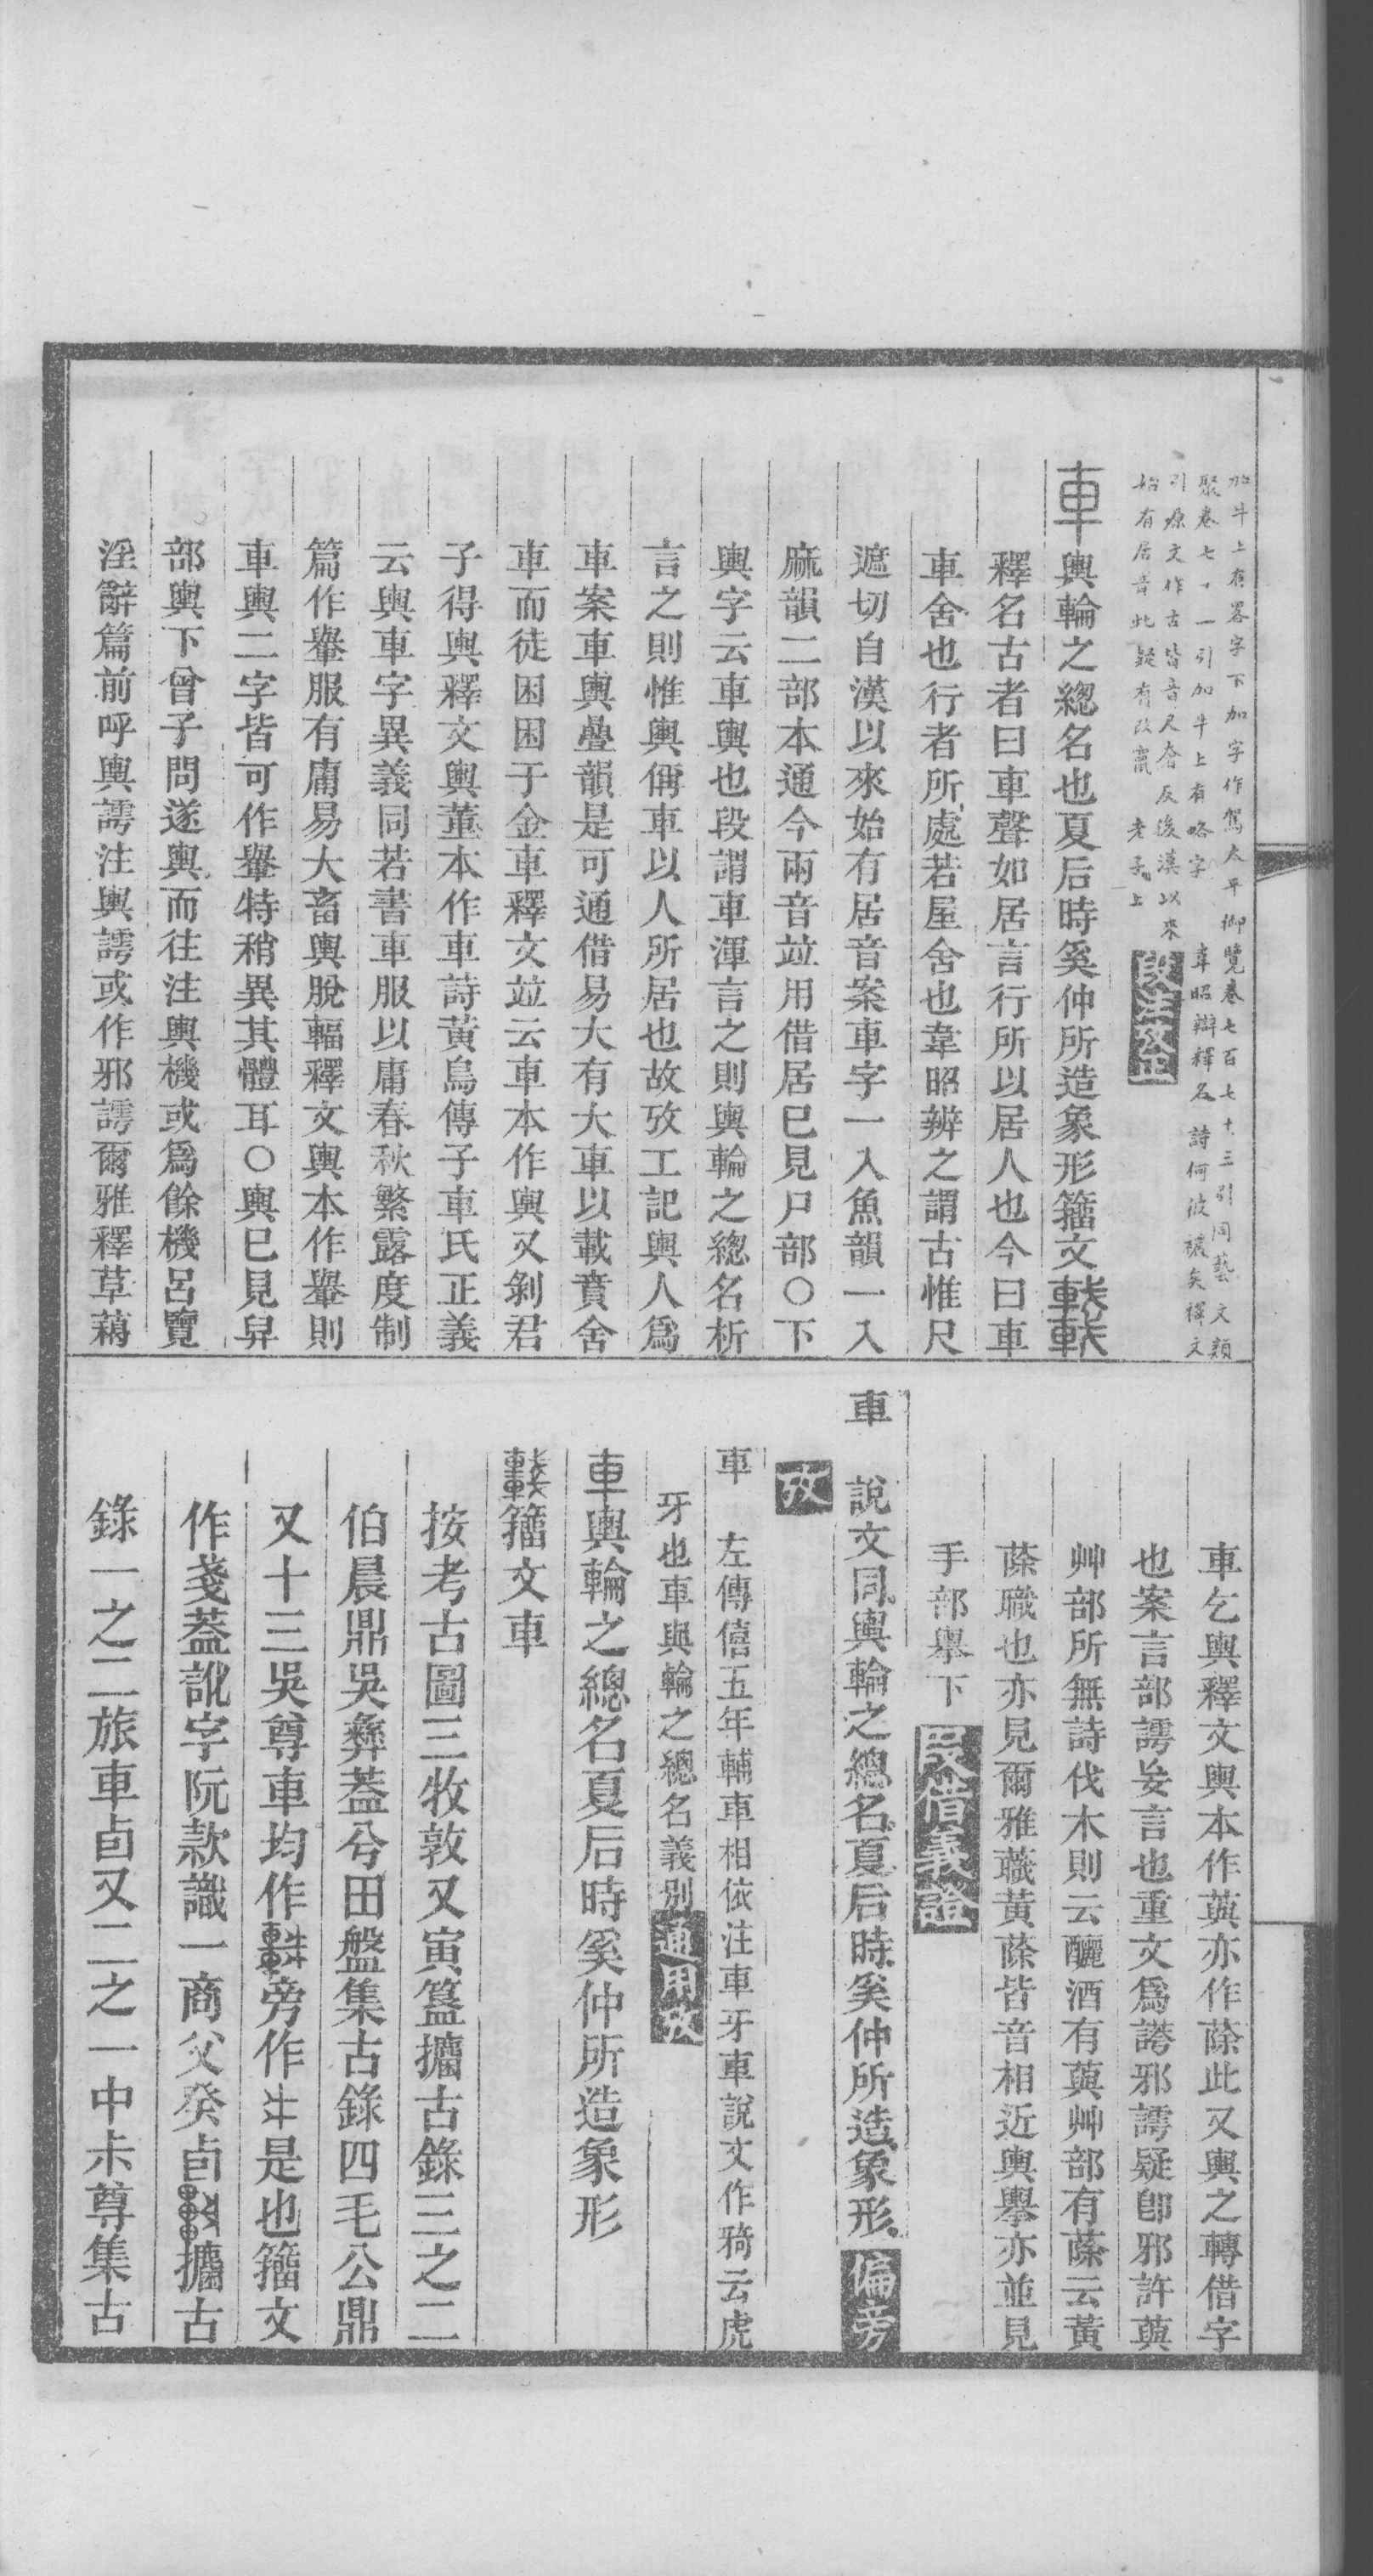 加牛上有畧字下加字作駕太平御覽卷七百七十三引同藝文類
聚卷七十一引加牛上有略字 韋昭辯釋名詩何彼襛矣釋文
引原文作古皆音尺奢反後漢以來
始有居音此疑有改竄 老子上
段注鈔
車輿輪之總名也夏后時奚仲所造象形籀文𨏖
釋名古者曰車聲如居言行所以居人也今曰車
車舍也行者所處若屋舍也韋昭辨之謂古惟尺
遮切自漢以來始有居音案車字一入魚韻一入
麻韻二部本通今兩音竝用借居已見尸部〇下
輿字云車輿也段謂車渾言之則輿輪之總名析
言之則惟輿偁車以人所居也故攷工記輿人爲
車案車輿疊韻是可通借易大有大車以載賁舍
車而徒困困于金車釋文竝云車本作輿又剝君
子得輿釋文輿董本作車詩黃鳥傳子車氏正義
云輿車字異義同若書車服以庸春秋繁露度制
篇作轝服有庸易大畜輿脫輻釋文輿本作轝則
車輿二字皆可作轝特稍異其體耳〇輿已見舁
部輿下曾子問遂輿而往注輿機或爲餘機呂覽
淫辭篇前呼輿謣注輿謣或作邪謣爾雅釋草藒
車乞輿釋文輿本作䓊亦作蒢此又輿之轉借字
也案言部謣妄言也重文爲䛻邪謣疑卽邪許䓊
艸部所無詩伐木則云釃酒有藇艸部有蒢云黃
蒢職也亦見爾雅蘵黃蒢皆音相近輿擧亦並見
手部擧下叚借義證
車 說文同輿輪之總名夏后時奚仲所造象形偏旁
攷
車 左傳僖五年輔車相依注車牙車說文作䮞云虎
牙也車輿輪之總名義別通用攷
車輿輪之總名夏后時奚仲所造象形
𨏖籀文車
按考古圖三牧敦又寅簋攈古錄三之二
伯晨鼎吳彝蓋兮田盤集古錄四毛公鼎
又十三吳尊車均作旁作是也籀文
作戔蓋訛字阮款識一商父癸卣攈古
錄一之二旅車卣又二之一中尊集古